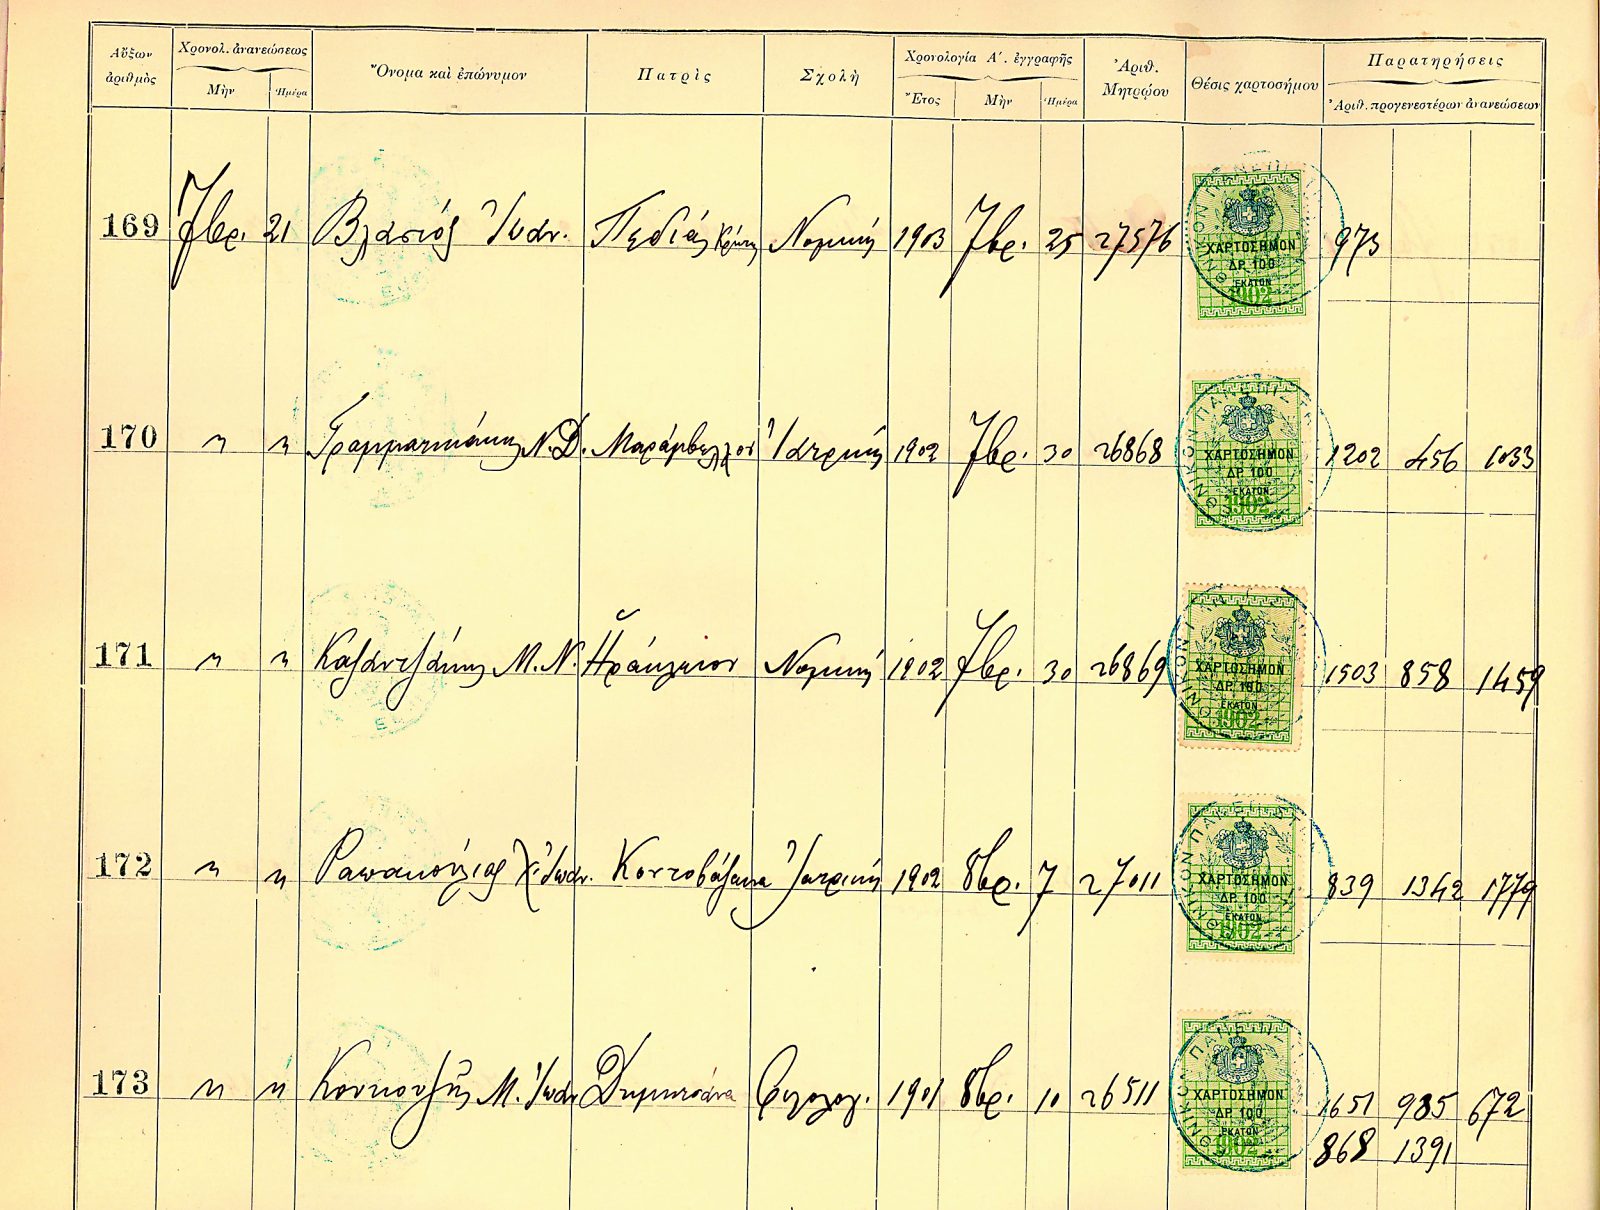 Αὔξων ἀριθμὸς Χρονολ. ἀνανεώσεως Μὴν Ἡμέρα Ὄνομα καὶ ἐπώνυμον Πατρὶς Σχολὴ Χρονολογία Α΄. ἐγγραφῆς Ἔτος Μὴν Ἡμέρα Ἀριθ. Μητρῴου Θέσις χαρτοσήμου Παρατηρήσεις Ἀριθ. προγενεστέρων ἀνανεώσεων
169 7βρ. 21 Βλασιός Ἰωάν. Πεδιάς Κρήτης Νομική 1903 7βρ. 25 27576 973
ΧΑΡΤΟΣΗΜΟΝ
ΔΡ. 100
ΕΚΑΤΟΝ
1902
170 〃 〃 Γραμματικάκης Ν. Δ. Μεράμβελλον Ἰατρική 1902 7βρ. 30 26868 1202 456 1033
ΧΑΡΤΟΣΗΜΟΝ
ΔΡ. 100
ΕΚΑΤΟΝ
1902
171 〃 〃 Καζαντζάκης Μ. Ν. Ἡράκλειον Νομική 1902 7βρ. 30 26869 1503 858 1459
ΧΑΡΤΟΣΗΜΟΝ
ΔΡ. 100
ΕΚΑΤΟΝ
1902
172 〃 〃 Ἰωάν. Κοντοβάζαινα Ἰατρική 1902 8βρ. 7 27011 839 1342 1779
ΧΑΡΤΟΣΗΜΟΝ
ΔΡ. 100
ΕΚΑΤΟΝ
1902
173 〃 〃 Μ. Ἰωάν Δημητσάνα Φιλολογ. 1901 8βρ. 10 26511 1651 985 672
868 1391
ΧΑΡΤΟΣΗΜΟΝ
ΔΡ. 100
ΕΚΑΤΟΝ
1902